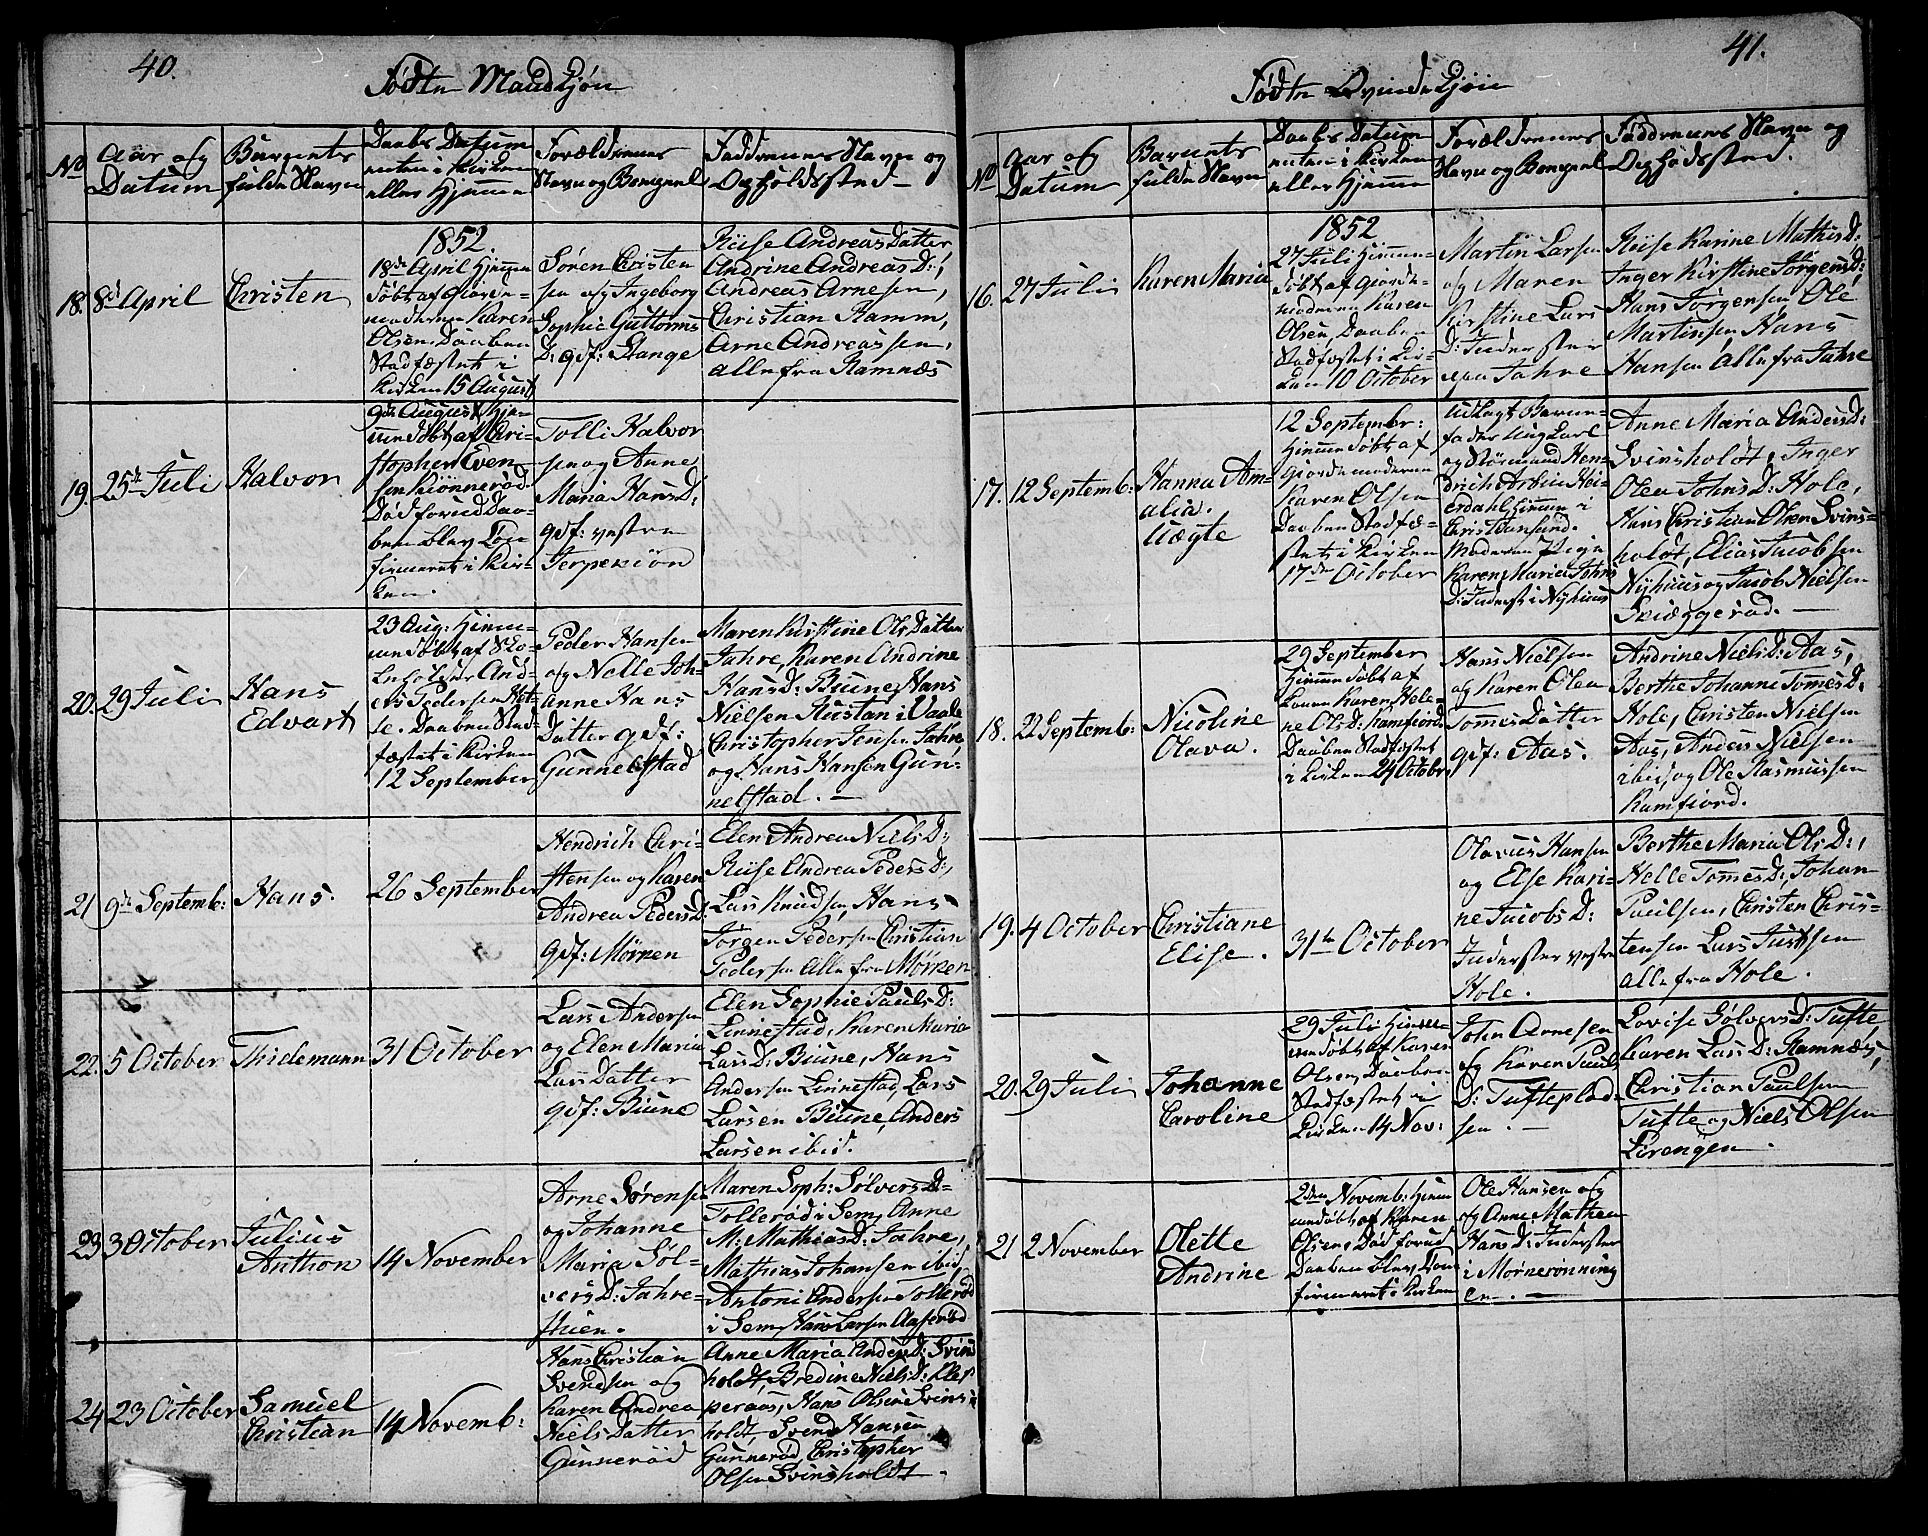 40.
Fødte Mandkjøn
No
Aar og
Datum
Barnets
fulde Navn
Daabs Datum
enten i Kirken
eller Hjemme
Forældrenes
Navn og Bopæl
Faddrenes Navn og
Opholdssted
18.
8de April
Christen
1852.
18de April Hjemme
døbt af Giorde-
moderen Karen
Olsen, Daaben
Stadfæstet i
Kirken 15 August
Søren Christen
sen og Ingeborg
Sophie Guttorms
D: gdf: Stange
Riise Andreas Datter
Andrine Andreas D:,
Andreas Arnesen,
Christian Ramm,
Arne Andreassen,
alle fra Ramnæs
19.
25de Juli
Halvor
9de August Hje-
mmedøbt af Chri-
stopher Even
sen Kiønnerød.
Død forend Daa-
ben blev Con
firmeret i Kir-
ken.
Tolli Halvor
sen og Anne
Maria Hans D:
gdf: vestre
Jerpekiøn
20.
29 Juli
Hans
Edvart
23 Aug: Hjem-
medøbt af Sko-
leholder And-
ers Pedersen
Daaben Stad-
fæstet i Kirken
12 September
Peder Hansen
og Nelle Joh-
anne Hans
Datter gdf:
Gunnelstad
Maren Kirstine Ols Datter
Jahre, Karen Andrine
Hans D: Biune, Hans
Nielsen Rustan i Vaale
Christopher Jensen Jahre
og Hans Hansen Gun-
nelstad. —
21
9de Septemb:
Hans.
26 September
Hendrich Chri-
stensen og Karen
Andrea Peders D:
gdf: Mørken
Elen Andrea Niels D:,
Riise Andrea Peders D:,
Lars Knudsen, Hans
Jørgen Pedersen Christian
Pedersen Alle fra Mørken
22.
5 October
Thidemann
31 October
Lars Andersen
og Elen Maria
Lars Datter
gdf: Biune
Elen Sophie Pauls D:
Linnestad, Karen Maria
Lars D: Biune, Hans
Andersen Linnestad, Lars
Larsen Biune, Anders
Larsen ibid.
23
3 October
Julius
Anthon
14 November
Arne Sørensen
og Johanne
Maria Søl-
vers D: Jahre-
shien.
Maren Soph: Sølvers D:
Tollerød i Sem, Anne
M: Mathias D: Jahre,
Mathias Johansen ibid,
Antoni Andersen Tollerød
i Sem, Hans Larsen Aaserød
24
23 October
Samuel
Christian
14 Novemb:
Hans Christian
Svendsen og
Karen Andrea
Niels Datter
Gunnerød
Anne Maria Anders D: Svins
holdt, Bredine Niels D: Klep
peraas, Hans Olsen Svins
holdt, Svend Hansen
Gunnerød, Christopher
Olsen Svinsholdt.
41.
Fødte Qvindekjøn
No
Aar og
Datum
Barnets
fulde Navn
Daabs Datum
enten i Kirken
eller Hjemme
Forældrenes
Navn og Bopæl
Faddrenes Navn og
Opholdssted.
16.
27 Juli
Karen Maria
1852
27 Juli Hjemme-
døbt af Giorde-
moderen Karen
Olsen, Daaben
Stadfæstet i Kir-
ken 10 October
Martin Larsen
og Maren
Kirstine Lars
D: Inderster
paa Jahre
Riise Karine Mathis D:
Inger Kirstine Jørgens D:
Hans Jørgensen Ole
Martinsen Hans
Hansen Alle fra Jahre
17.
12 Septemb:
Hanna Am-
alia.
Uægte
12 Septembr:
Hjemmedøbt af
Giordemoderen
Karen Olsen
Daaben Stadfæ-
stet i Kirken
17de October
Udlagt Barne-
fader Ung Karl
og Størmand Hen-
drich Hei-
erdahl Hjemme i
Christiansund.
Moderen Pige
Karen Maria Johns
D: Inderst i Nyhuus
Anne Maria Anders D:
Svinsholdt, Inger
Olea Johns D: Hole,
Hans Christian Olsen Svins-
holdt, Elias Jacobsen
Nyhuus og Jacob Nielsen
Skiæggerød. —
18.
22 Septemb:
Nicoline
Olava.
29 September
Hjemmedøbt af
Konen Karen Hele-
ne Ols D: Ramfiord.
Daaben Stadfæstet
i Kirken 24 Octobr
Hans Nielsen
og Karen Olea
Tomes Datter
gdf: Aas.
Andrine Niels D: Aas,
Berthe Johanne Tomes D:
Hole, Christen Nielsen
Aas, Anders Nielsen
ibid, og Ole Rasmussen
Ramfiord.
19.
4 October
Christiane
Elise.
31te October
Olavus Hansen
og Else Kari-
ne Jacobs D:
Inderster vestre
Hole.
Berthe Maria Ols D:,
Helle Tomes D:, Johan
Paulsen, Christen Chris-
tensen Lars Justsen
Alle fra Hole.
20.
29 Juli
Johanne
Caroline
29 Juli Hjem-
medøbt af Karen
Olsen, Daaben
Stadfæstet i
Kirken 14 Nov:
John Arnesen
og Karen Pauls
D: Tufteplad-
sen. —
Lovise Sølvers D: Tufte
Karen Lars D: Ramnæs,
Christian Paulsen
Tufte og Niels Olsen
Lirengen.
21
2 November
Olette
Andrine
2den Novemb: Hjem
medøbt af Karen
Olsen, Død forend
Daaben blev Con
firmeret i Kirken
Ole Hansen og
og Anne Mathea
Hans D: Inderster
i Mørkerønning
en. —